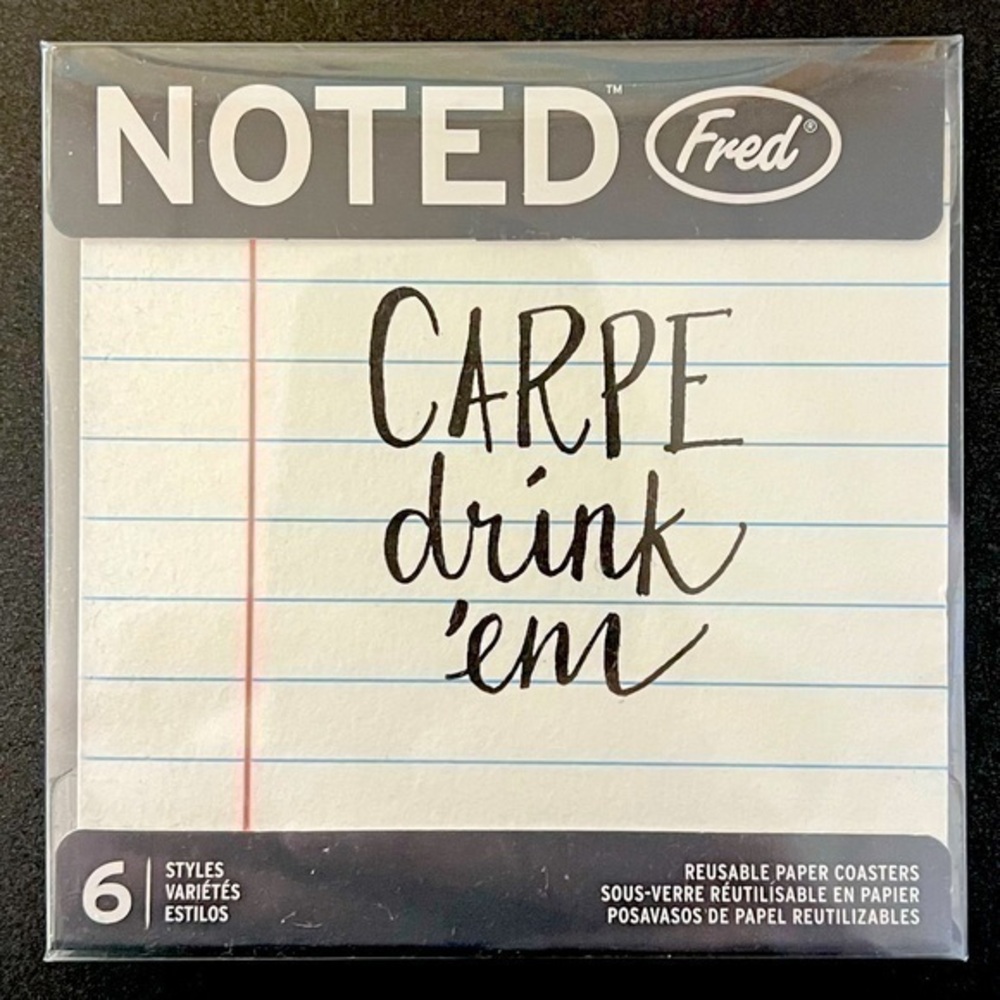 NOTED™ Fred®
CARPE
drink
'em
6
STYLES
VARIÉTÉS
ESTILOS
REUSABLE PAPER COASTERS
SOUS-VERRE RÉUTILISABLE EN PAPIER
POSAVASOS DE PAPEL REUTILIZABLES